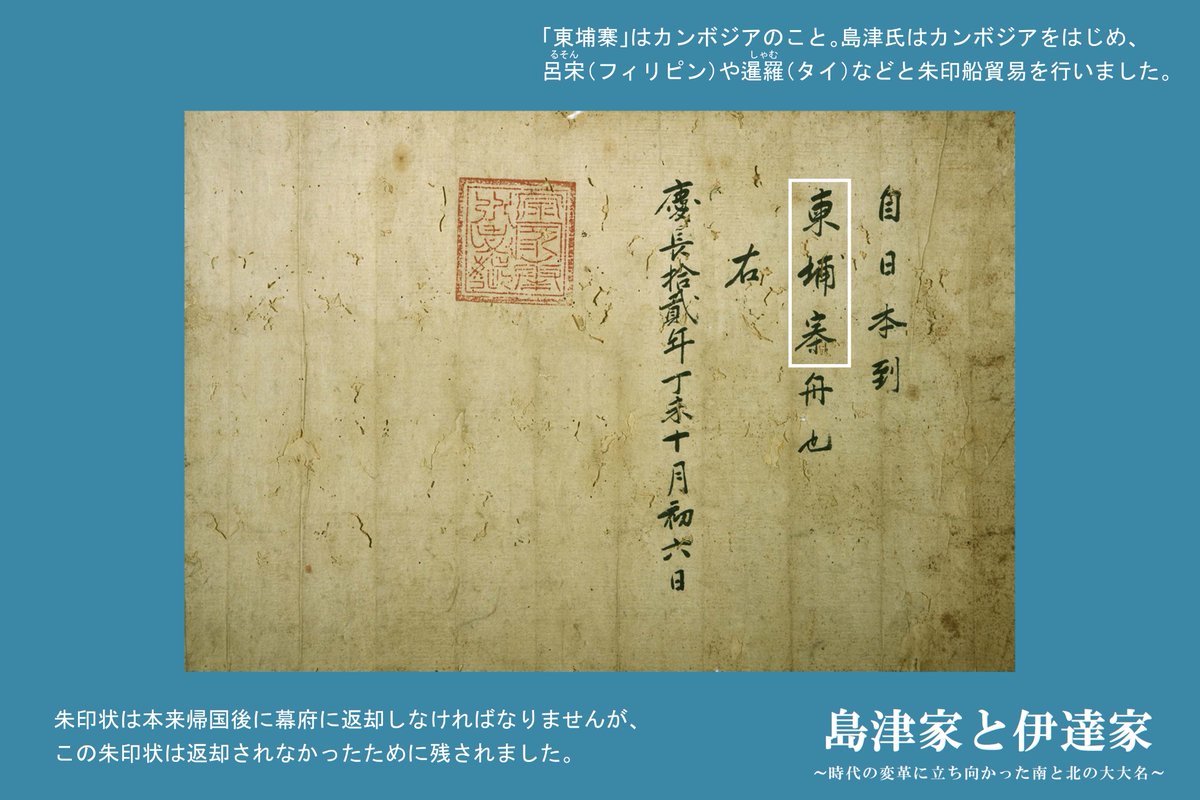 「東埔寨」はカンボジアのこと。島津氏はカンボジアをはじめ、
るそん しゃむ
呂宋(フィリピン)や暹羅(タイ)などと朱印船貿易を行いました。
自日本到
東埔寨舟也
右
慶長拾貳年丁未十月初六日
朱印状は本来帰国後に幕府に返却しなければなりませんが、
この朱印状は返却されなかったために残されました。
島津家と伊達家
~時代の変革に立ち向かった南と北の大大名~